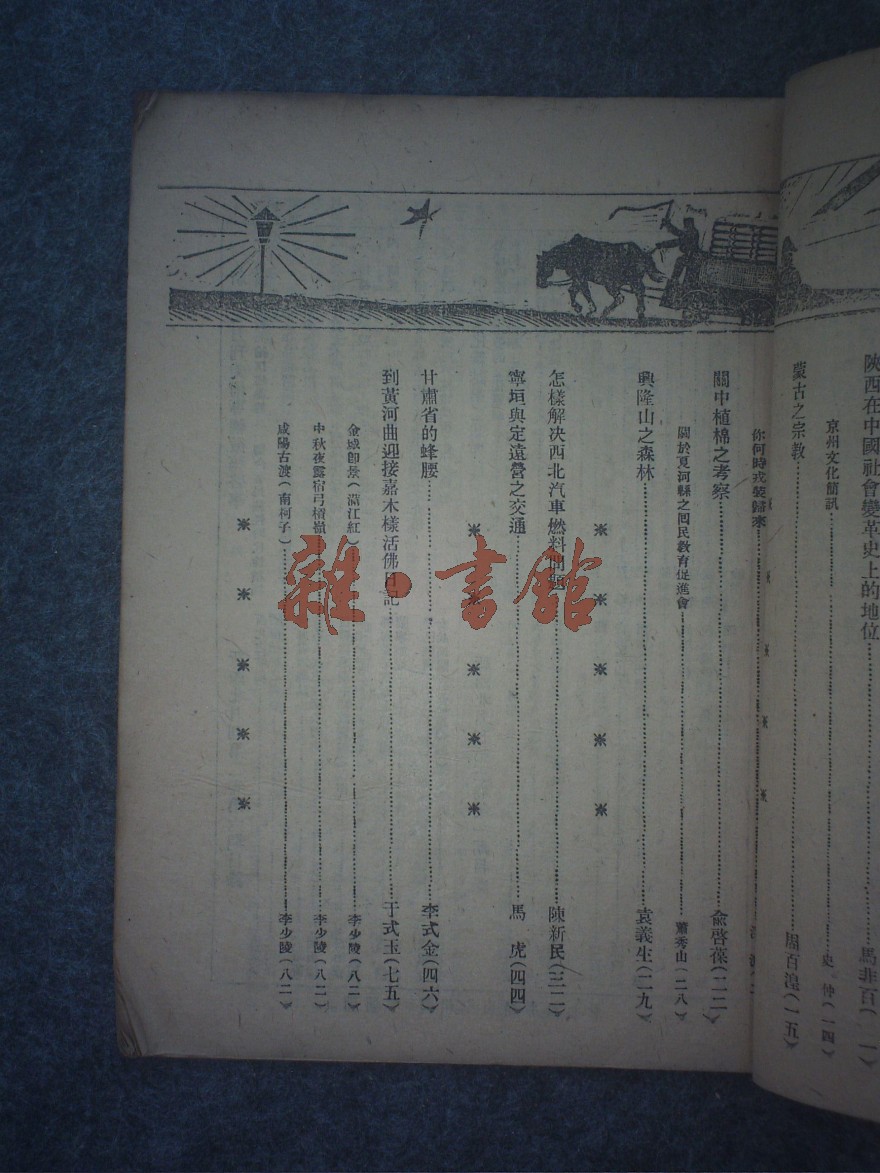 陝西在中國社會變革史上的地位 馬非百(一)
京州文化簡訊 史 仲(一四)
蒙古之宗教 周百湟(一五)
你何時戎裝歸來
關中植棉之考察 俞啓葆(二二)
關於夏河縣之回民教育促進會 蕭秀山(二八)
興隆山之森林 袁義生(二九)
※ ※ ※ ※ ※
怎樣解决西北汽車燃料問題 陳新民(三二)
寧垣與定遠營之交通 馬 虎(四四)
※ ※ ※ ※ ※
甘肅省的蜂腰 李式金(四六)
到黃河曲迎接嘉木樣活佛日記 于式玉(七五)
金城卽景(滿江紅) 李少陵(八二)
中秋夜露宿弓檟嶺 李少陵(八二)
咸陽古渡(南柯子) 李少陵(八二)
※ ※ ※ ※ ※
雜·書館